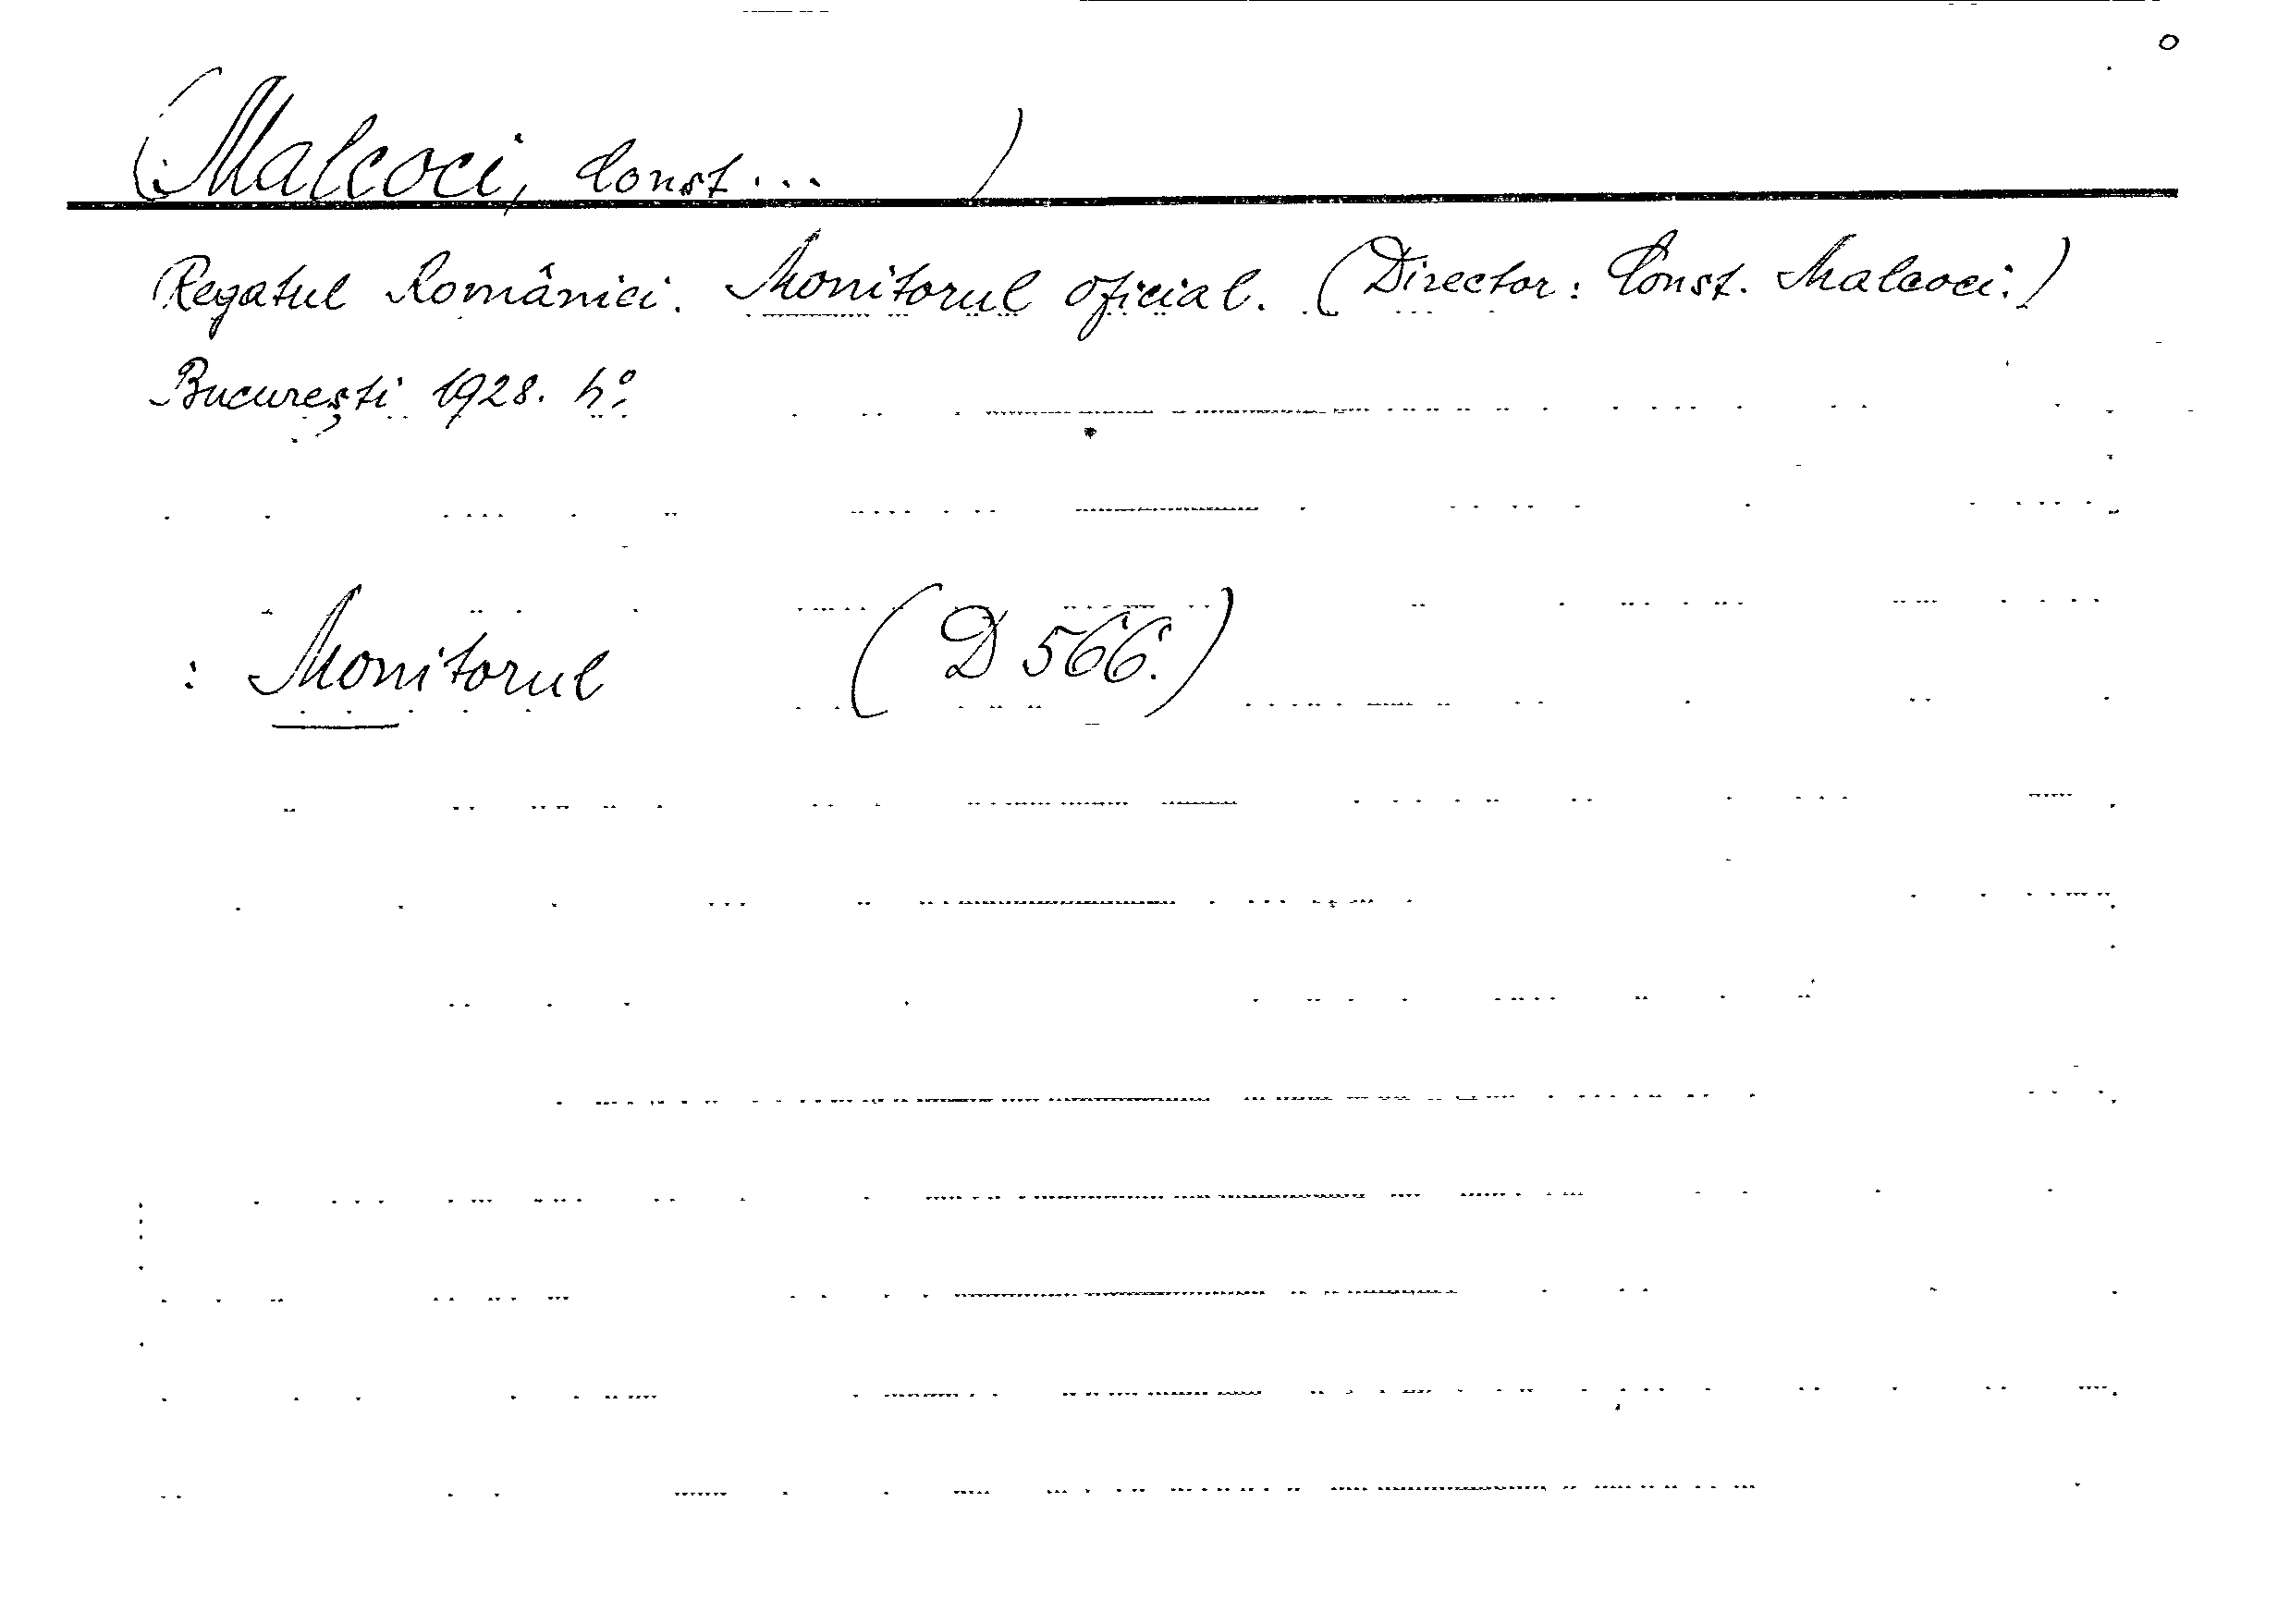 (Malcoci, Const...)
Regatul României. Monitorul oficial. (Director: Const. Malcoci.)
București 1928. 4º.
: Monitorul (D 566.)